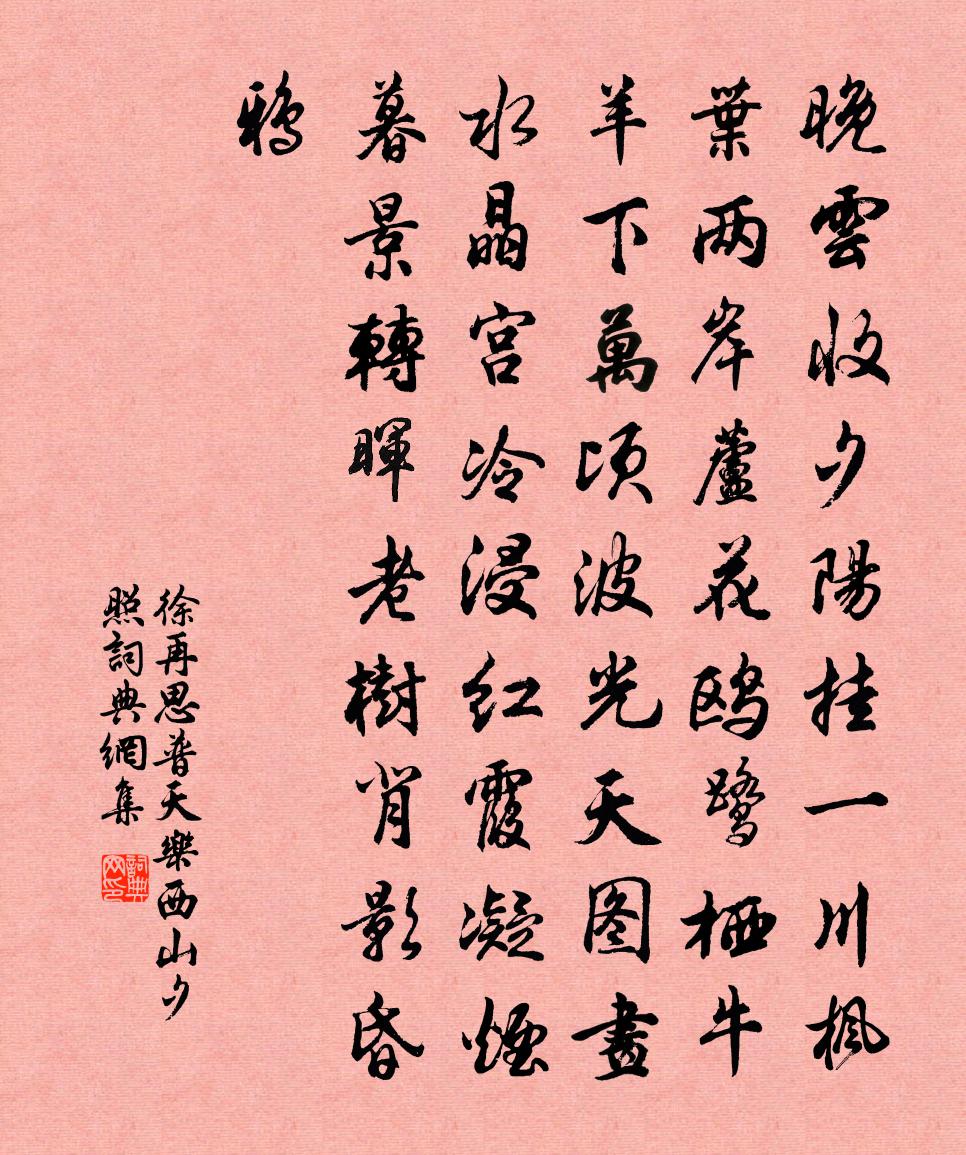 晚雲收夕陽挂一川楓
葉两岸蘆花鸥鷺栖牛
羊下萬顷波光天图畫
水晶宫冷浸红霞凝煙
暮景轉暉老樹肖影昏
鴉
徐再思普天樂西山夕
照詞典網集
詞典网印